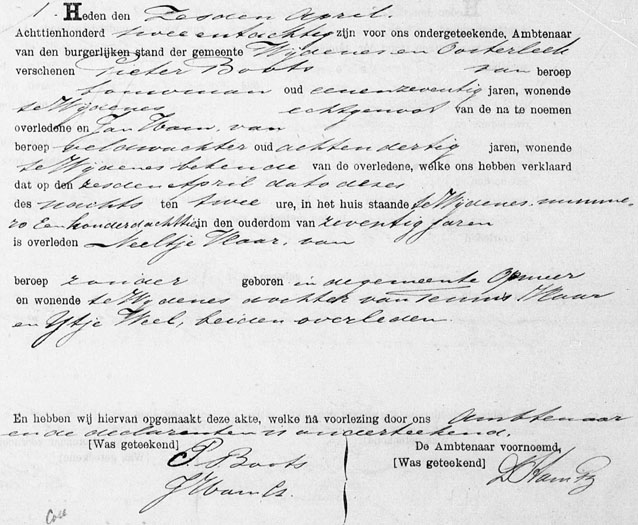 1. Heden den Zesden April.
Achttienhonderd twee en tachtig zijn voor ons ondergeteekende, Ambtenaar
van den burgerlijken stand der gemeente Wijdenes en Oosterleek
verschenen Pieter Boots van beroep
bouwman oud eenenzeventig jaren, wonende
te Wijdenes echtgenoot van de na te noemen
overledene en Jan Ham, van
beroep veldwachter oud achtendertig jaren, wonende
te Wijdenes bekende van de overledene, welke ons hebben verklaard
dat op den zesden April dato dezes
des nachts ten twee ure, in het huis staande te Wijdenes. numme-
ro Een honderd acht in den ouderdom van zeventig jaren
is overleden Neeltje Klaar, van
beroep zonder geboren in de gemeente Opmeer
en wonende te Wijdenes dochter van Teunis Klaar
en Ytje Weel, beiden overleden.
En hebben wij hiervan opgemaakt deze akte, welke na voorlezing door ons Ambtenaar
en de declaranten is onderteekend.
[Was geteekend] De Ambtenaar voornoemd,
P. Boots [Was geteekend]